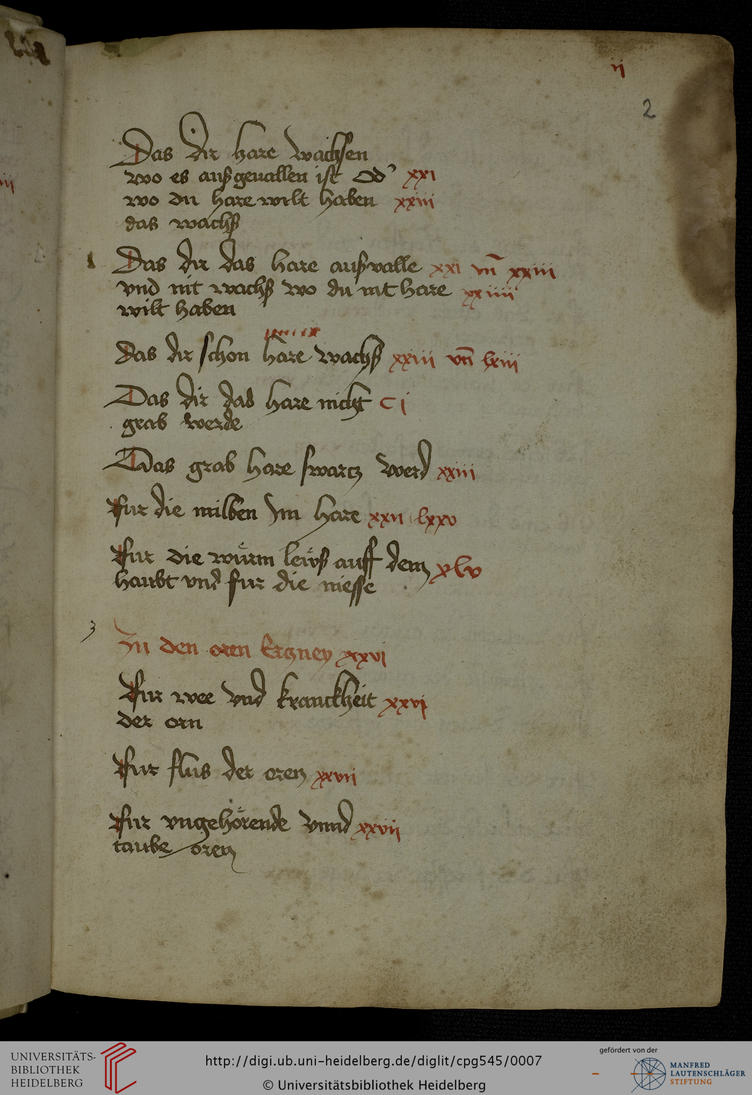 ii
2
Das dir hare wachsen
wo es außgeuallen ist Od' xxi
wo du hare wilt haben xxiii
das wachß
Das dir das hare außualle xxi vn̄ xxiii
vnd nit wachß wo du nit hare xxiiii
wilt haben
das dir schon hare wachß xxiii vn̄ lxiii
Das dir das hare nicht c i
grab werde
Das grab hare swartz werd xxiii
Fur die milben Im hare xxvii lxxv
Fur die würm leẅß auff dem xlv
haubt vnd fur die niesse
3
In den oren Ertzney xxvi
Fur wee vnd kranckheit xxvi
der orn
Fur flus der oren xxvii
Fur vngehörende vnnd xxvii
taube oren
UNIVERSITÄTS-
BIBLIOTHEK
HEIDELBERG
http://digi.ub.uni-heidelberg.de/diglit/cpg545/0007
© Universitätsbibliothek Heidelberg
gefördert von der
MANFRED
LAUTENSCHLÄGER
STIFTUNG